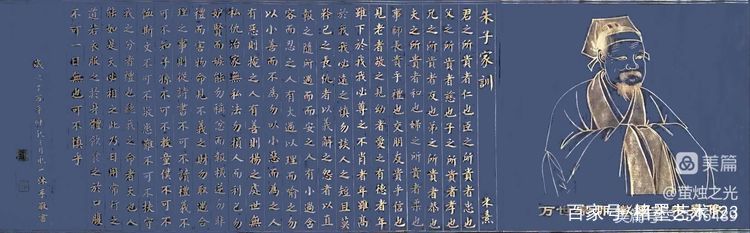 朱子家訓 朱熹
君之所貴者仁也臣之所貴者忠也
父之所貴者慈也子之所貴者孝也
兄之所貴者友也弟之所貴者恭也
夫之所貴者和也婦之所貴者柔也
事師長貴乎禮也交朋友貴乎信也
見老者敬之見幼者愛之有德者年
雖下於我我必尊之不肖者年雖高
於我我必遠之慎勿談人之短且莫
矜己之長仇者以義解之怨者以直
報之隨所遇而而安之人有小過含
容而忍之人有大過以理而喻之勿
以小善而不為勿以小惡而為之人
有惡則掩之人有善則揚之處世無
私仇治家無私法勿損人而利己勿
妒賢而嫉能勿稱忿而報橫逆勿非
禮而害物命見不義之財勿取遇合
理之事則從詩書不可不讀禮義不
可不知子孫不可不教童僕不可不
恤斯文不可不敬患難不可不扶守
我之分者禮也聽我之命者天也人
能如是天必相之此乃日用常行之
道若衣服之於身體飲食之於口腹
不可一日無也可不慎乎
美篇
@萤烛之光